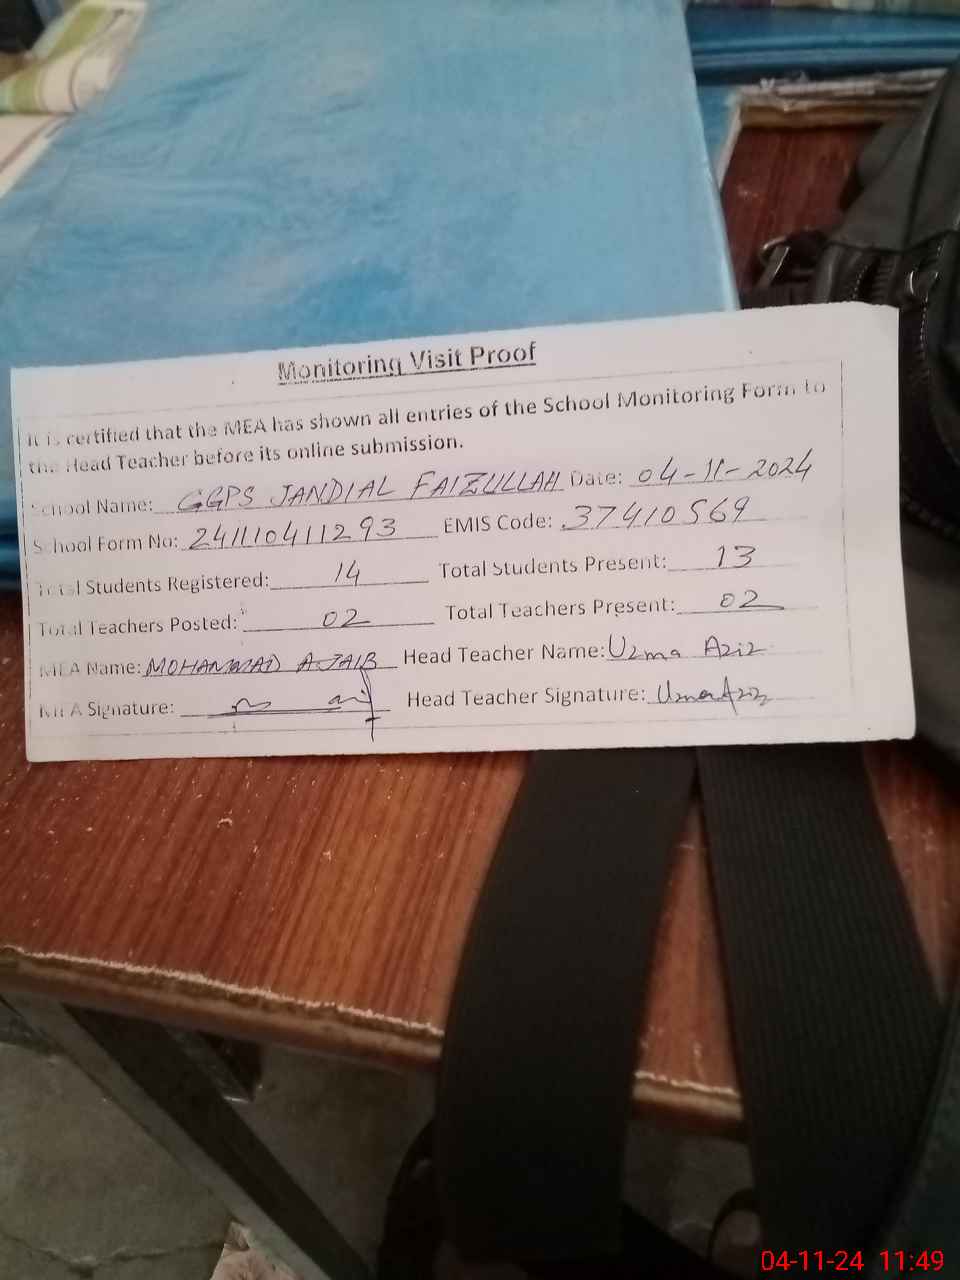 Monitoring Visit Proof
It is certified that the MEA has shown all entries of the School Monitoring Form to
the Head Teacher before its online submission.
School Name: GGPS JANDIAL FAIZULLAH Date: 04-11-2024
School Form No: 241110411293 EMIS Code: 37410569
Total Students Registered: 14 Total Students Present: 13
Total Teachers Posted: 02 Total Teachers Present: 02
MEA Name: MOHAMMAD AJAIB Head Teacher Name: Uzma Aziz
MEA Signature: Head Teacher Signature: Uzma Aziz
04-11-24 11:49